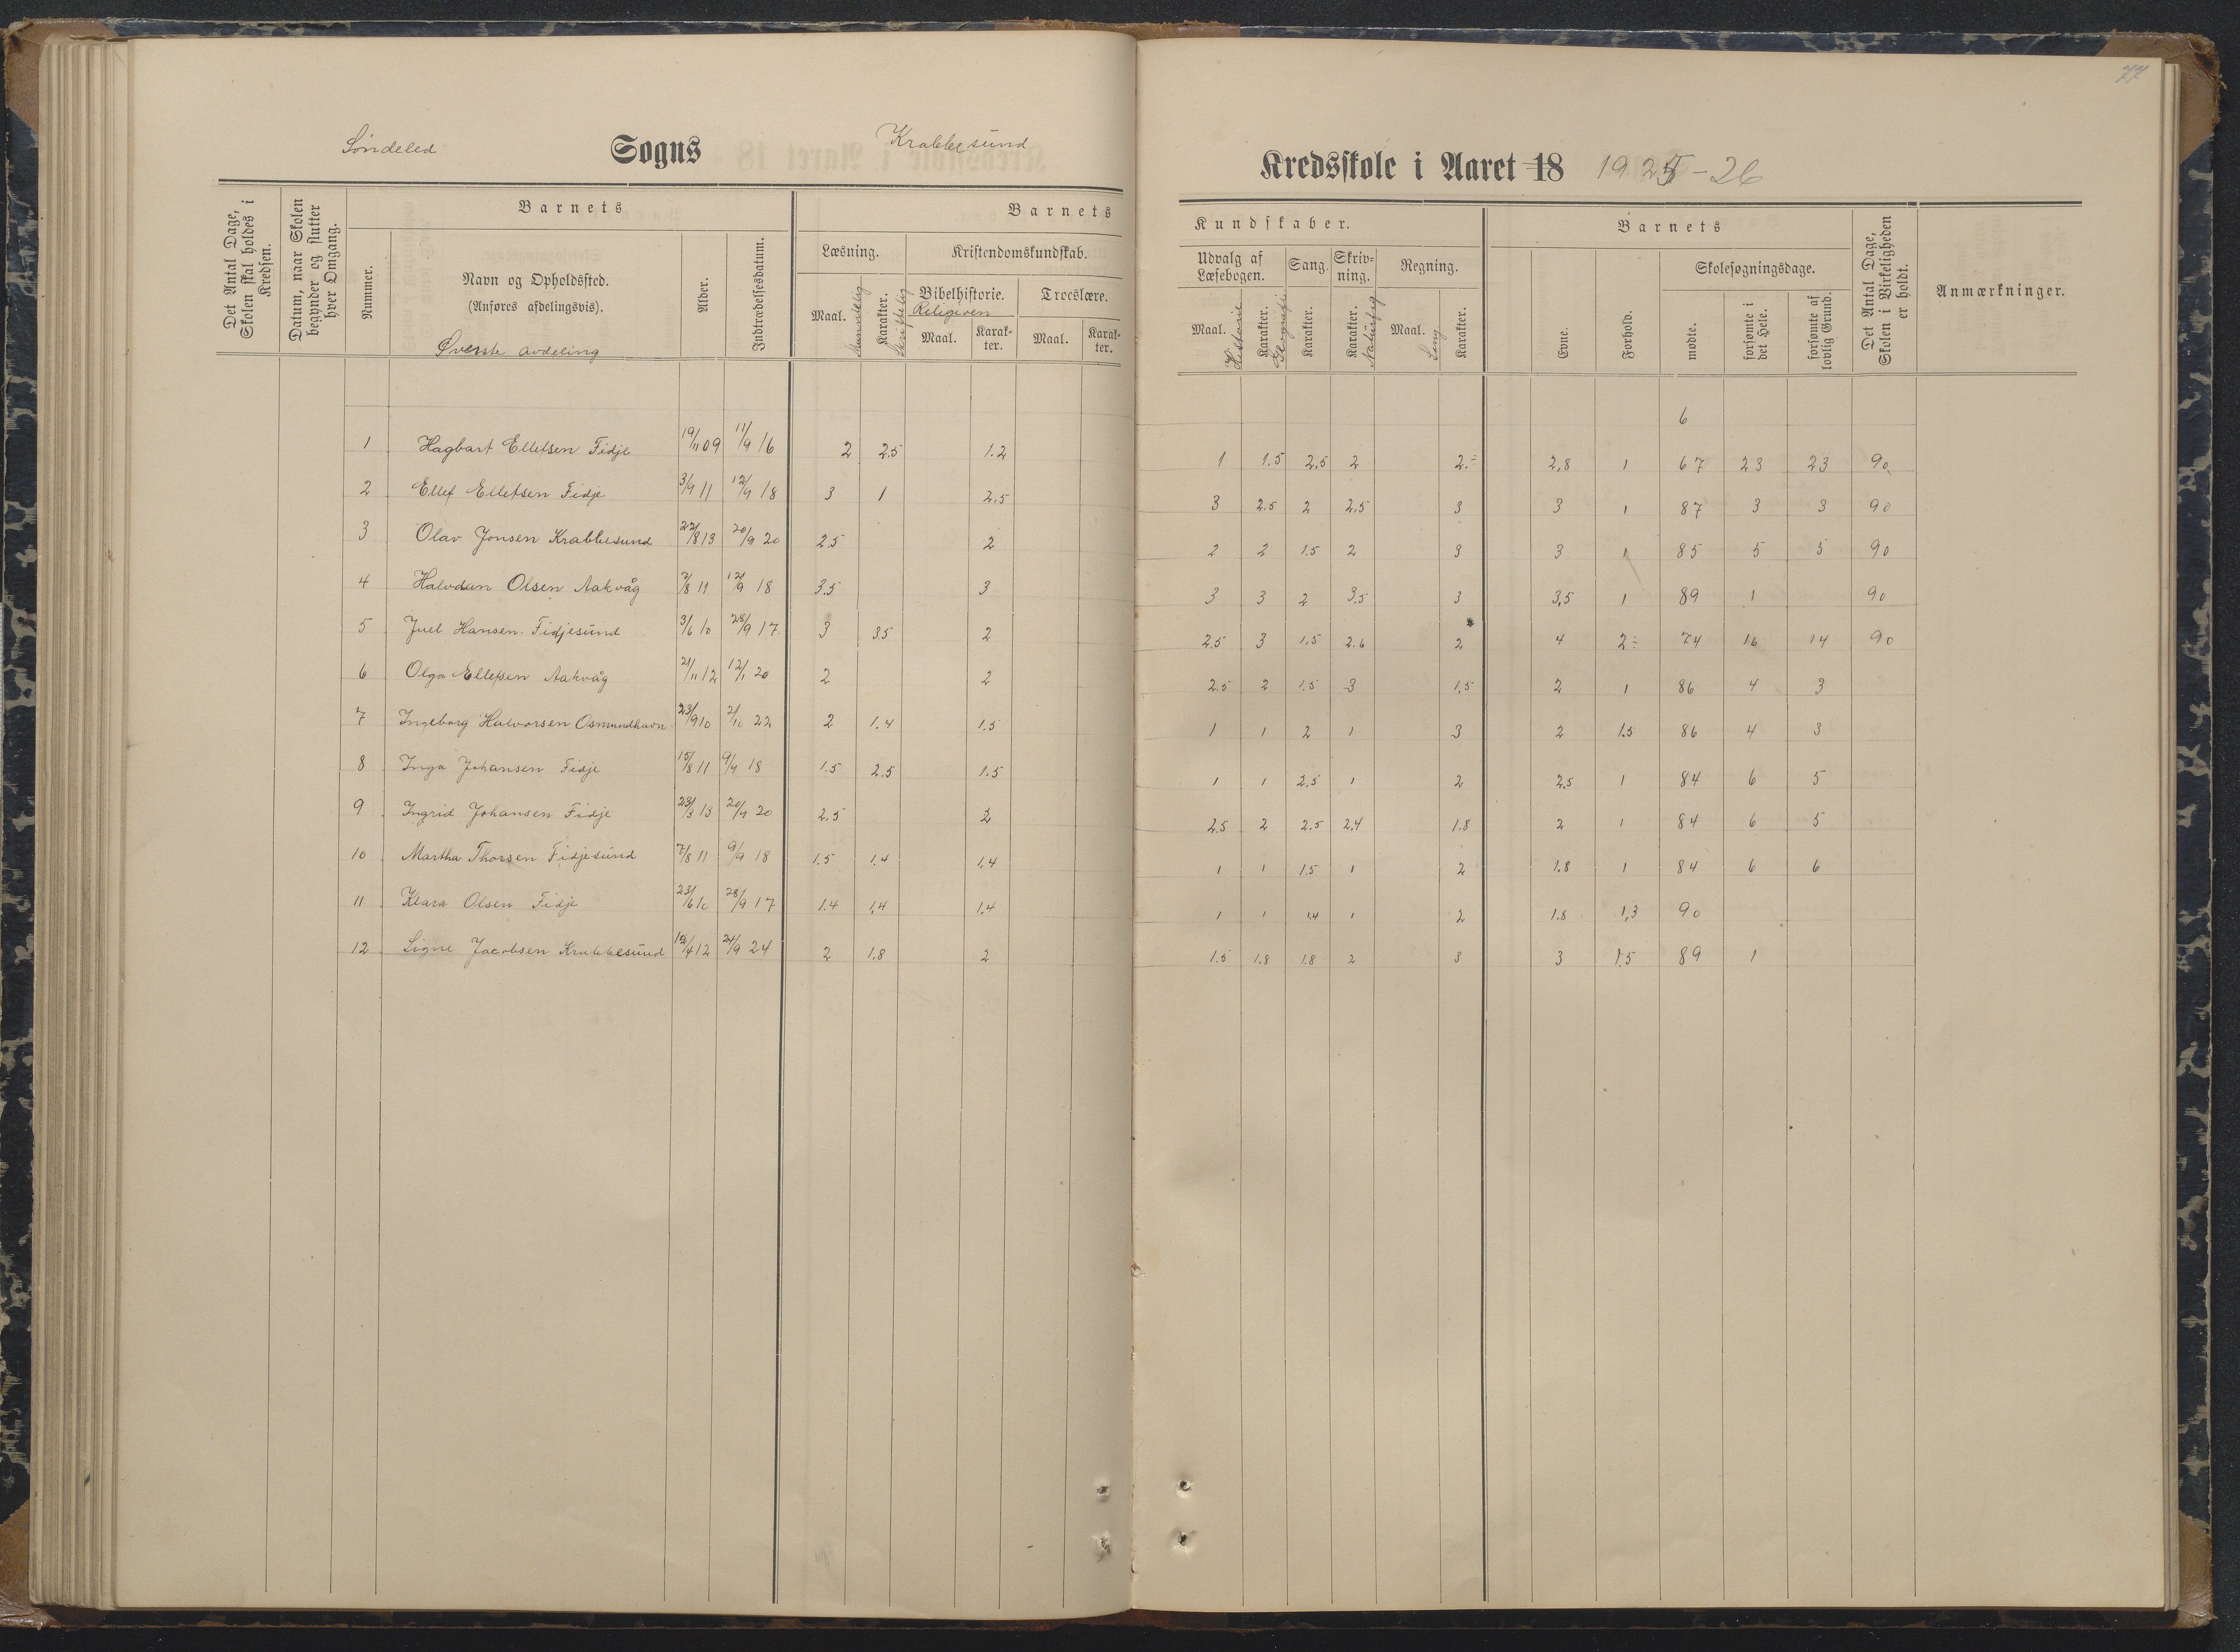 77
Søndeled Sogns Krabbesund Kredsskole i Aaret 18 1925-26
Det Antal Dage, Skolen skal holdes i Kredsen.
Datum, naar Skolen begynder og slutter hver Omgang.
Barnets
Nummer.
Navn og Opholdssted.
(Anføres afdelingsvis).
Øverste avdeling
Alder.
Indtrædelsesdatum.
Barnets
Læsning.
Maal. Mundtlig
Karakter. Skriftlig
Kristendomskundskab.
Bibelhistorie.
Religion
Maal.
Karakter.
Troeslære.
Maal.
Karakter.
Kundskaber.
Udvalg af Læsebogen.
Maal. Historie
Karakter. Geografi
Sang.
Karakter.
Skrivning.
Karakter. Naturfag
Regning.
Maal. Sang
Karakter.
Barnets
Evne.
Forhold.
Skolesøgningsdage.
mødte.
forsømte i det Hele.
forsømte af lovlig Grund.
Det Antal Dage, Skolen i Virkeligheden er holdt.
Anmærkninger.
6
1 Hagbart Ellefsen Fidje 19/11 09 11/9 16 2 2.5 1.2 1 1.5 2,5 2 2.÷ 2,8 1 67 23 23 90
2 Ellef Ellefsen Fidje 3/9 11 12/9 18 3 1 2.5 3 2.5 2 2,5 3 3 1 87 3 3 90
3 Olav Jonsen Krabbesund 22/8 13 20/9 20 2.5 2 2 2 1.5 2 3 3 1 85 5 5 90
4 Halvdan Olsen Aakvåg 7/8 11 12/9 18 3.5 3 3 3 2 3,5 3 3,5 1 89 1 90
5 Juel Hansen Fidjesund 3/6 10 28/9 17. 3 3.5 2 2.5 3 1,5 2.6 2 4 2÷ 74 16 14 90
6 Olga Ellefsen Aakvåg 21/11 12 12/1 20 2 2 2.5 2 1.5 3 1,5 2 1 86 4 3
7 Ingeborg Halvorsen Osmundhavn 23/9 10 2/10 22 2 1.4 1.5 1 1 2 1 3 2 1.5 86 4 3
8 Inga Johansen Fidje 15/8 11 9/9 18 1.5 2.5 1.5 1 1 2,5 1 2 2.5 1 84 6 5
9 Ingrid Johansen Fidje 23/3 13 20/9 20 2.5 2 2.5 2 2.5 2,4 1.8 2 1 84 6 5
10 Martha Thorsen Fidjesund 7/8 11 9/9 18 1.5 1.4 1.4 1 1 1.5 1 2 1.8 1 84 6 6
11 Klara Olsen Fidje 23/6 10 28/9 17 1.4 1.4 1.4 1 1 1.4 1 2 1.8 1,3 90
12 Signe Jacobsen Krabbesund 12/4 12 24/9 24 2 1.8 2 1.5 1.8 1.8 2 3 3 1.5 89 1